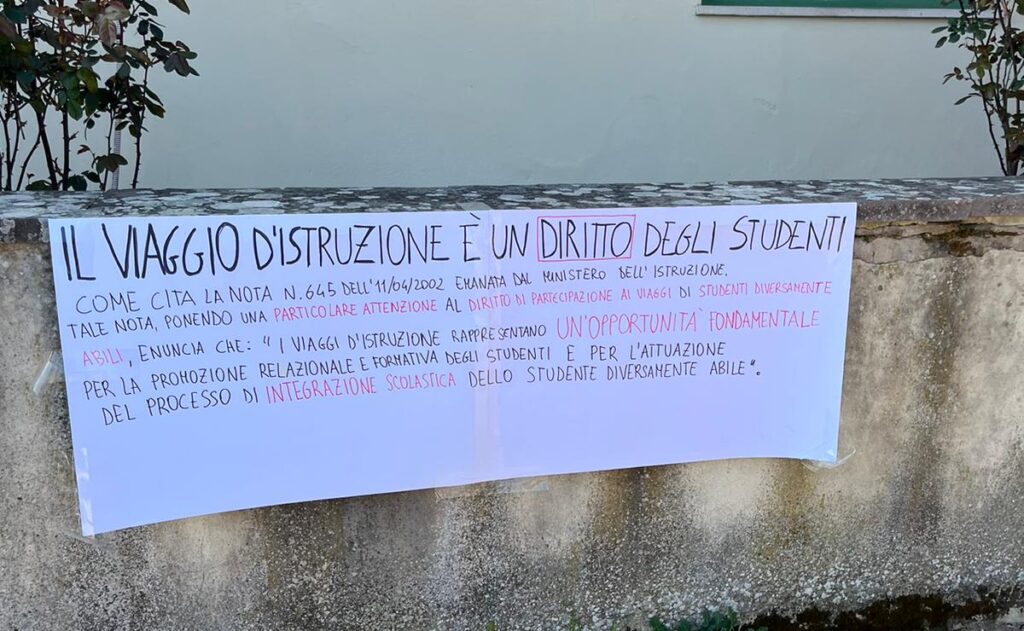 IL VIAGGIO D'ISTRUZIONE È UN DIRITTO DEGLI STUDENTI
COME CITA LA NOTA N.645 DELL'11/04/2002 EMANATA DAL MINISTERO DELL'ISTRUZIONE.
TALE NOTA, PONENDO UNA PARTICOLARE ATTENZIONE AL DIRITTO DI PARTECIPAZIONE AI VIAGGI DI STUDENTI DIVERSAMENTE
ABILI, ENUNCIA CHE: "I VIAGGI D'ISTRUZIONE RAPPRESENTANO UN'OPPORTUNITÀ FONDAMENTALE
PER LA PROMOZIONE RELAZIONALE E FORMATIVA DEGLI STUDENTI E PER L'ATTUAZIONE
DEL PROCESSO DI INTEGRAZIONE SCOLASTICA DELLO STUDENTE DIVERSAMENTE ABILE".